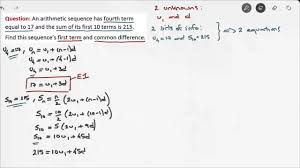 Question: An arithmetic sequence has fourth term
equal to 17 and the sum of its first 10 terms is 215.
Find this sequence's first term and common difference.
2 unknowns:
u₁ and d
2 bits of info:
u₄=17 and S₁₀=215
⇒ 2 equations
u₄=17, uₙ = u₁ + (n-1)d
u₄ = u₁ + (4-1)d
u₄ = u₁ + 3d
17 = u₁ + 3d → E1
S₁₀=215, Sₙ = n/2 (2u₁ + (n-1)d)
S₁₀ = 10/2 (2u₁ + (10-1)d)
S₁₀ = 5 (2u₁ + 9d)
S₁₀ = 10u₁ + 45d
215 = 10u₁ + 45d